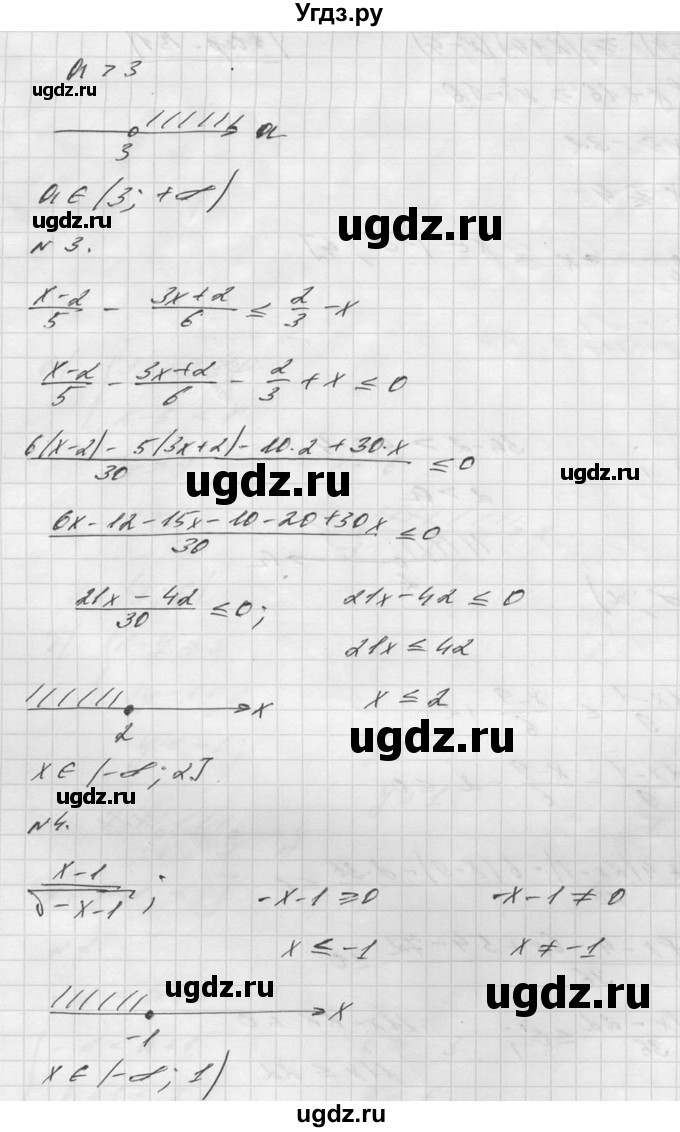 Угдз.ру
a > 3
ugdz.ru
3 a
a ∈ (3; +∞)
ugdz.ru
ugdz.ru
№ 3.
(x-2)/5 - (3x+2)/6 ≤ 2/3 - x
(x-2)/5 - (3x+2)/6 - 2/3 + x ≤ 0
(6(x-2) - 5(3x+2) - 10·2 + 30·x)/30 ≤ 0
ugdz.ru
ugdz.ru
(6x - 12 - 15x - 10 - 20 + 30x)/30 ≤ 0
(21x - 42)/30 ≤ 0; 21x - 42 ≤ 0
ugdz.ru
21x ≤ 42
x ≤ 2
2 x
ugdz.ru
x ∈ (-∞; 2]
ugdz.ru
№4.
(x-1)/√(-x-1); -x-1 ≥ 0 -x-1 ≠ 0
x ≤ -1 x ≠ -1
ugdz.ru
ugdz.ru
-1 x
x ∈ (-∞; 1)
ugdz.ru